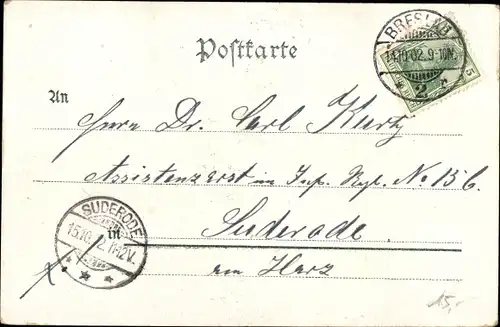 BRESLAU
14.10.02.9-10N.
2.
5
Postkarte
An
Herrn Dr. Carl Kurtz
Assistenzarzt im Inf. Rgt. No 156.
SUDERODE
15.10. 2. 11-12V.
in
Suderode
am Harz
15,-